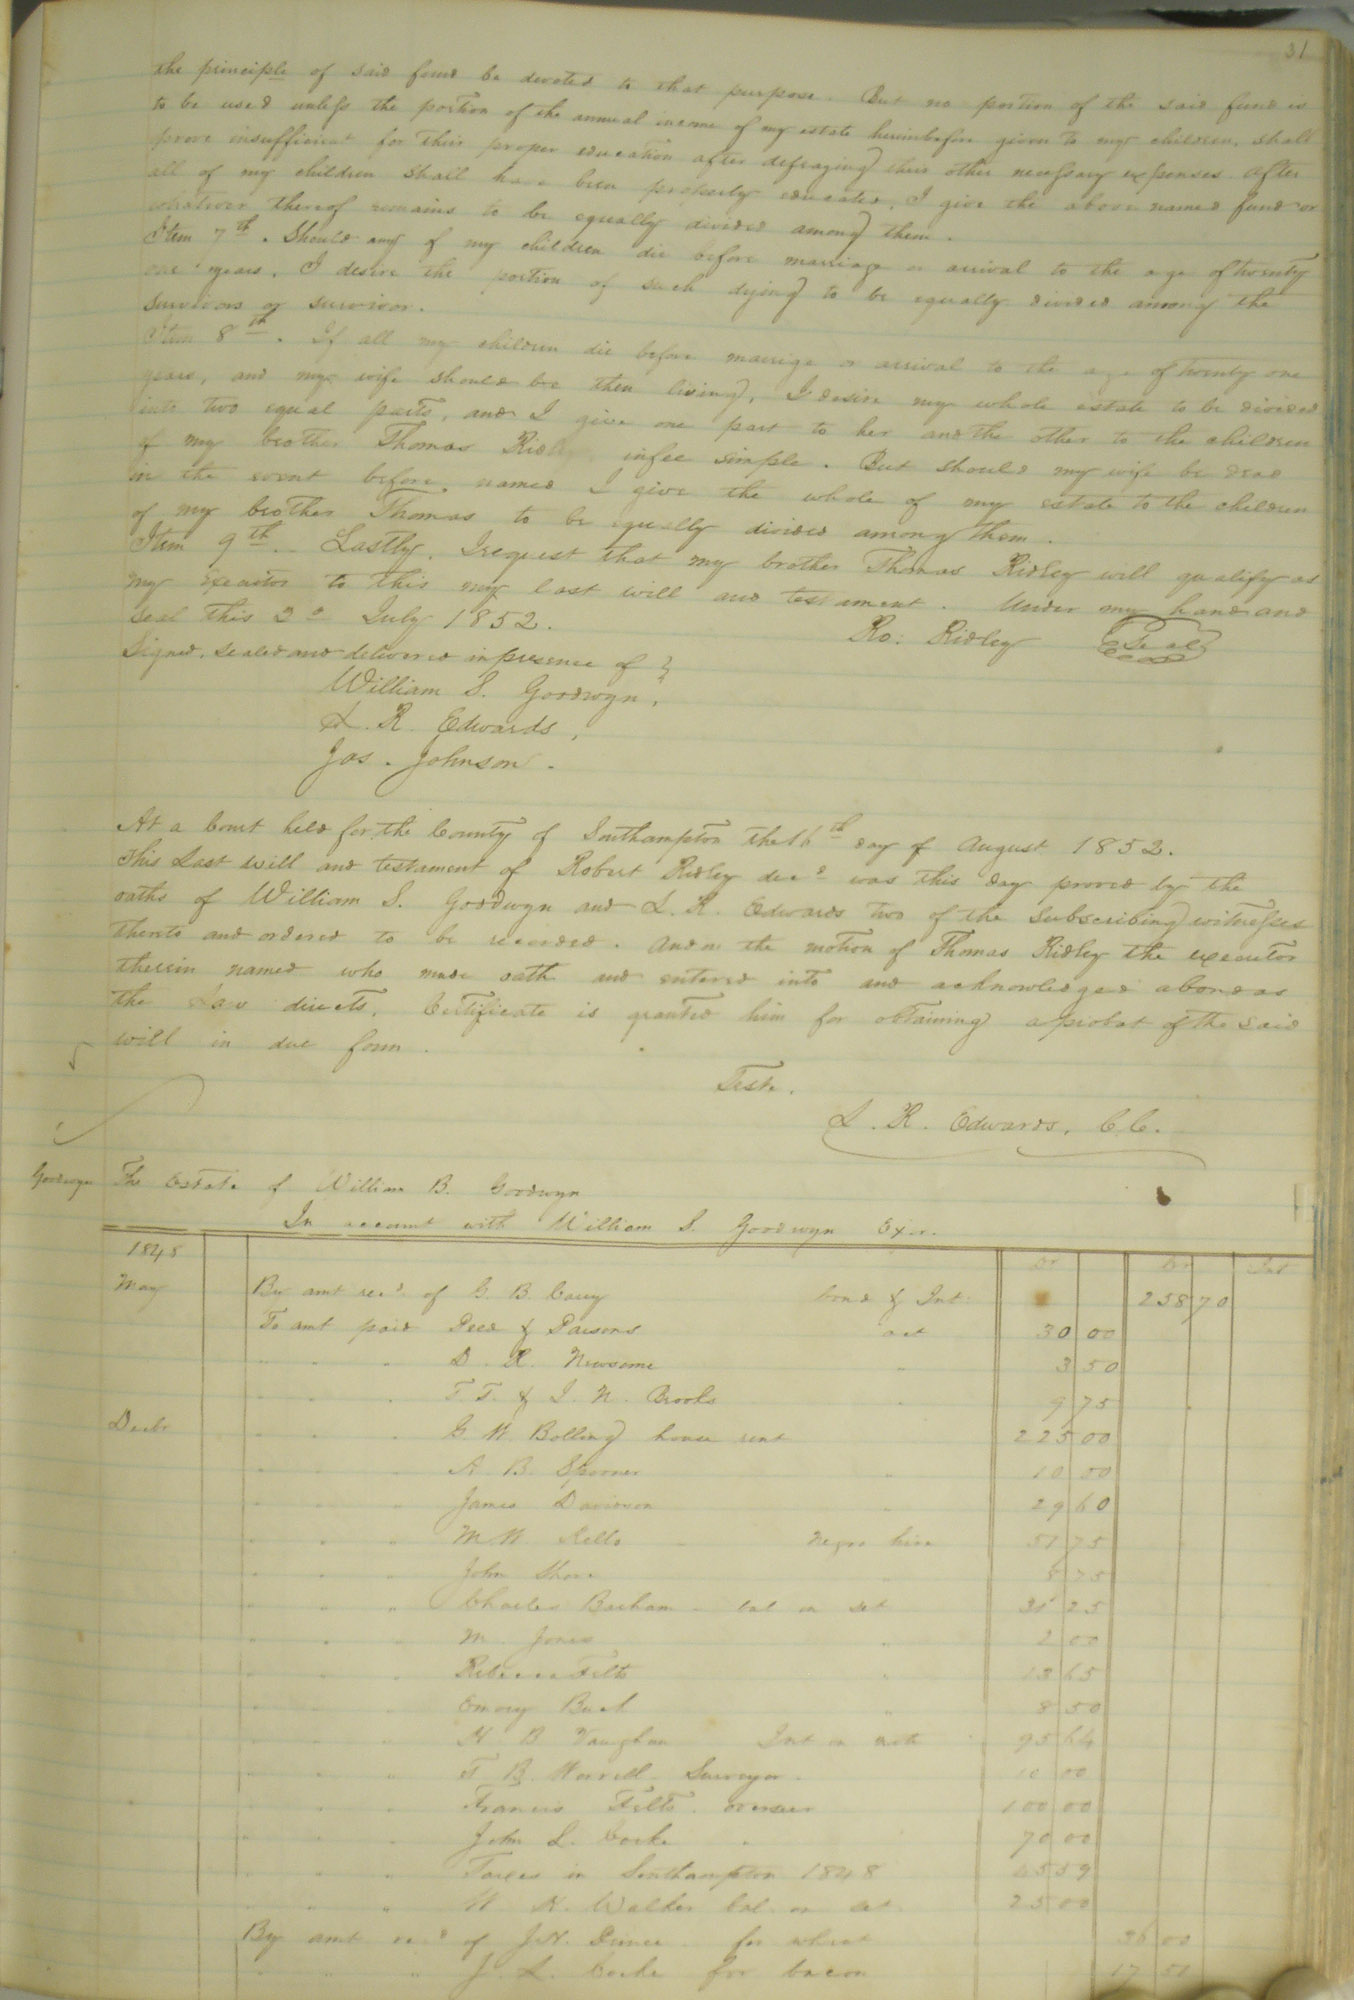 31
the principle of said fund be devoted to that purpose. But no portion of the said fund is
to be used unless the portion of the annual income of my estate hereinbefore given to my children, shall
prove insufficient for their proper education after defraying their other necessary expenses after
all of my children shall have been properly educated, I give the above named fund or
whatever thereof remains to be equally divided among them.
Item 7th. Should any of my children die before marriage or arrival to the age of twenty
one years, I desire the portion of such dying to be equally divided among the
survivors or survivor.
Item 8th. If all my children die before marriage or arrival to the age of twenty one
years, and my wife should be then living, I desire my whole estate to be divided
into two equal parts, and I give one part to her and the other to the children
of my brother Thomas Ridley in fee simple. But should my wife be dead
in the event before named I give the whole of my estate to the children
of my brother Thomas to be equally divided among them.
Item 9th. Lastly, I request that my brother Thomas Ridley will qualify as
my executor to this my last will and testament. Under my hand and
seal this 2d July 1852. Ro: Ridley Seal
Signed, sealed and delivered in presence of
William S. Goodwyn,
L. R. Edwards,
Jas. Johnson.
At a Court held for the County of Southampton the 16th day of August 1852.
This Last will and testament of Robert Ridley decd was this day proved by the
oaths of William S. Goodwyn and L. R. Edwards two of the subscribing witnesses
thereto and ordered to be recorded. And on the motion of Thomas Ridley the executor
therein named who made oath and entered into and acknowledged a bond as
the Law directs, Certificate is granted him for obtaining a probat of the said
will in due form.
Teste.
L. R. Edwards, C. C.
Goodwyn The Estate of William B. Goodwyn
In account with William S. Goodwyn Exor.
1848 Dr Cr Int
May By amt recd. of G. B. Cary bond & Int. 258 70
To amt paid Peed & Parsons act 30 00
" " " D. R. Newsome " 3 50
" " " T. T. & I. N. Brooks " 9 75
Decbr " " " G. W. Bolling house rent 225 00
" " " A. B. Spooner " 10 00
" " " James Davidson " 29 60
" " " M. W. Kello negro hire 51 75
" " " John Shore " 8 75
" " " Charles Barham bal on act 31 25
" " " M. Jones " 2 00
" " " Rebecca Felts " 13 65
" " " Emory Bush " 8 50
" " " H. B. Vaughan Int on note 95 64
" " " T. B. Worrell Surveyor 10 00
" " " Francis Felts overseer 100 00
" " " John L. Cocke " 70 00
" " " Taxes in Southampton 1848 45 59
" " " W. H. Walker bal. on act 25 00
By amt recd of J. H. Prince for wheat 36 00
" " " J. L. Cocke for bacon 17 51